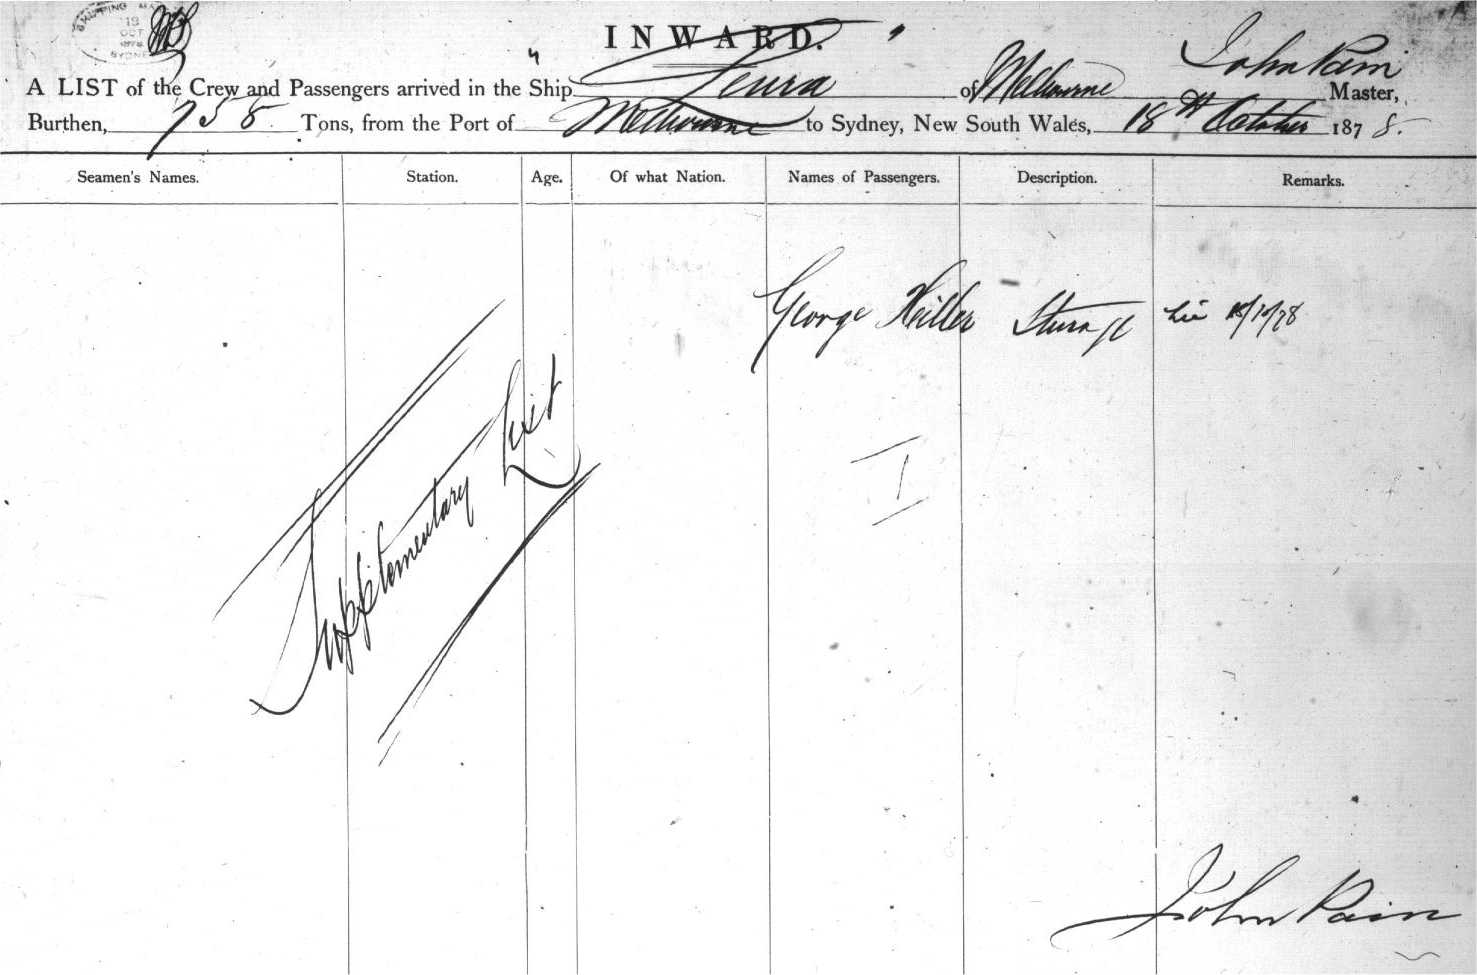 SHIPPING MA
19
OCT
1878
SYDNEY
INWARD.
A LIST of the Crew and Passengers arrived in the Ship " Leura " of Melbourne John Pain Master,
Burthen, 758 Tons, from the Port of Melbourne to Sydney, New South Wales, 18th October 1878.
Seamen's Names. Station. Age. Of what Nation. Names of Passengers. Description. Remarks.
George Heiller Steerage 18/10/78
Supplementary List
1
John Pain